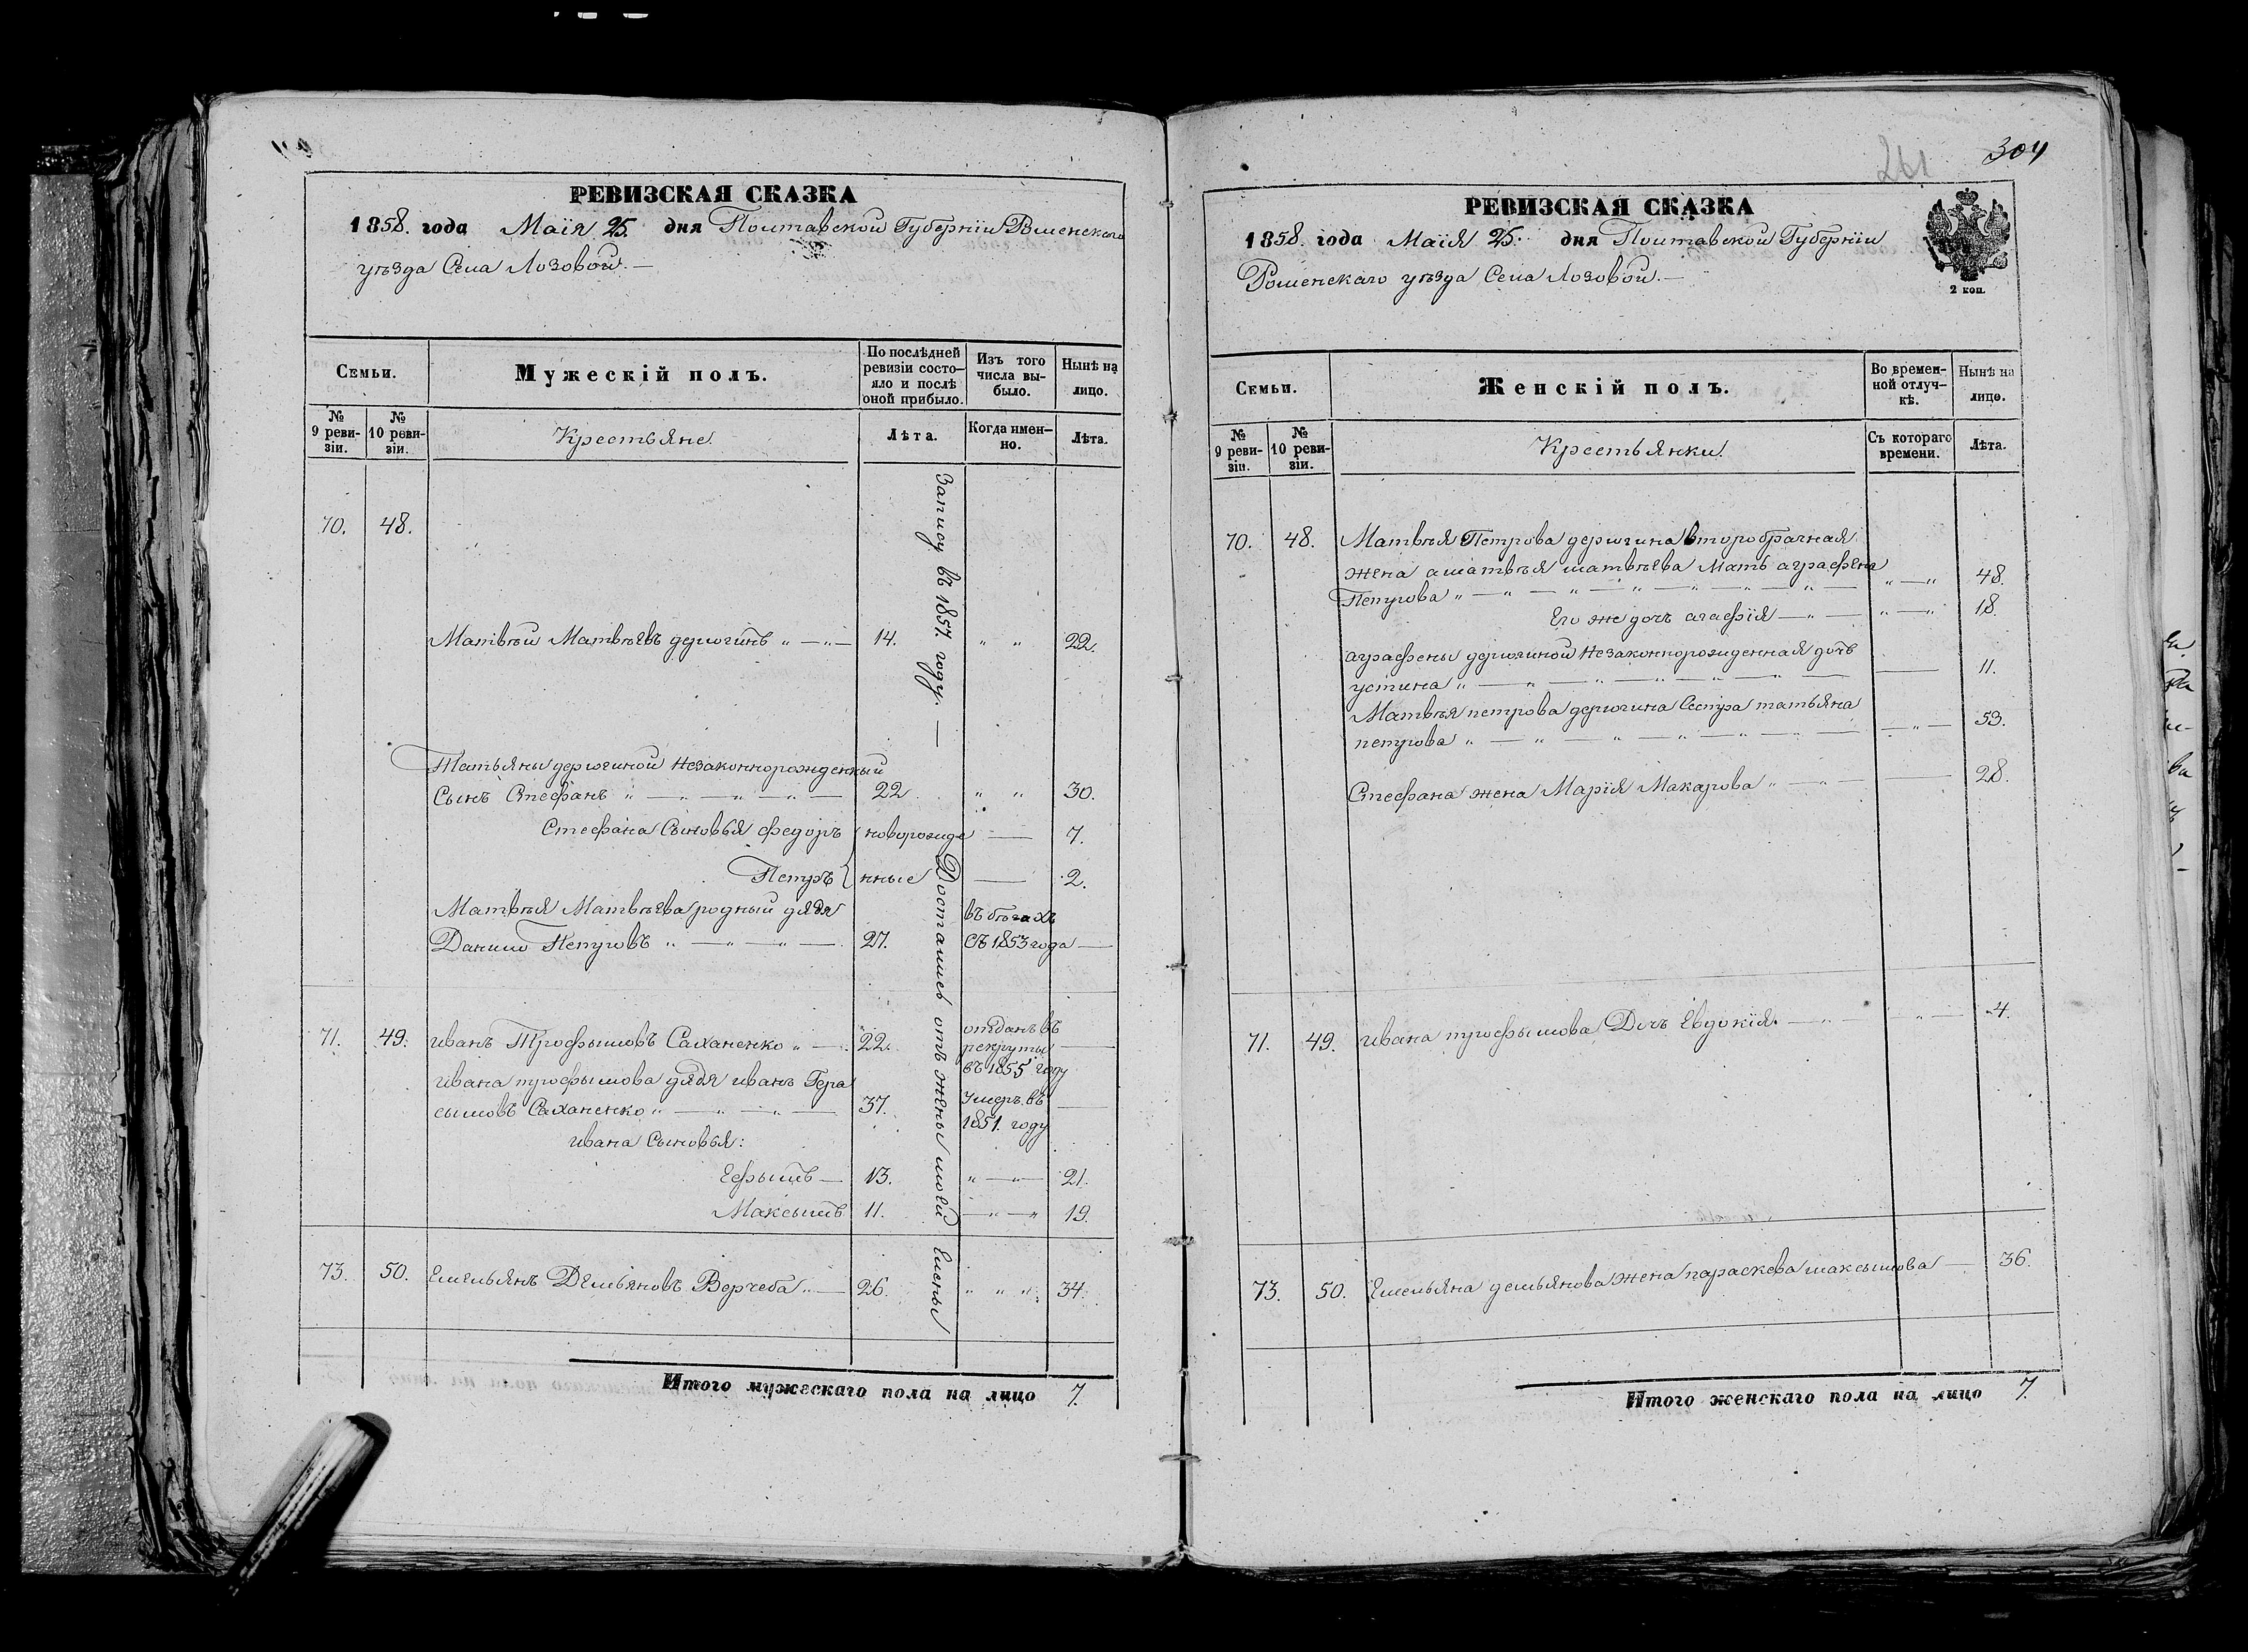 РЕВИЗСКАЯ СКАЗКА
1858. года Маія 25. дня Полтавской Губерніи Рменскаго
уѣзда Села Лозовой. —
Семьи.
Мужескій полъ.
По послѣдней
ревизіи состо-
яло и послѣ
оной прибыло.
Изъ того
числа вы-
было.
Нынѣ на
лицо.
№
9 реви-
зіи.
№
10 реви-
зіи.
Крестьяне.
Лѣта.
Когда имен-
но.
Лѣта.
70. 48.
Матвѣй Матвѣевъ дерюгинъ „ — „ — 14. „ „ 22.
Татьяны дерюгиной незаконнорожденный
Сынъ Стефанъ „ — „ — „ — „ — 22 „ „ 30.
Стефана Сыновья федоръ новорожде — 7.
Петръ нные — 2.
Матвѣя Матвѣева родный дядя въ бѣгахъ
Данило Петровъ „ — „ — „ — 27. съ 1853 года —
71. 49. иванъ Трофымовъ Саханенко „ — 22. отданъ въ
рекруты —
въ 1855 году
ивана трофымова дядя иванъ Гера
сымовъ Саханенко „ — „ — „ — 37. Умеръ въ —
1851. году
ивана Сыновья:
Ефымъ — 13. „ — „ — 21.
Максымъ 11. — „ — „ 19.
73. 50. Емельянъ Демьяновъ Верчеба „ — 26. „ „ „ 34.
Запиоу въ 1857. году. —
Доставшев отъ жены моей Елены
Итого мужескаго пола на лицо 7.
261
304
РЕВИЗСКАЯ СКАЗКА
1858. года Маія 25. дня Полтавской Губерніи
Роменскаго уѣзда Села Лозовой. —
2 коп.
Семьи.
Женскій полъ.
Во времен-
ной отлуч-
кѣ.
Нынѣ на
лицо.
№
9 реви-
зіи.
№
10 реви-
зіи.
Крестьянки.
Съ котораго
времени.
Лѣта.
70. 48. Матвѣя Петрова дерюгина второбрачная
жена аматвѣя матвѣева Мать аграфена
Петрова „ — „ — „ — „ — „ — „ — „ — „ — „ 48.
Его же дочь агафія — „ — „ — „ 18.
аграфены дерюгиной незаконнорожденная дочь
устина „ — „ — „ — „ — „ — „ — — 11.
Матвѣя петрова дерюгина Сестра татьяна
петрова „ — „ — „ — „ — „ — „ — — „ — 53.
Стефана жена Марія Макарова „ — „ — — 28.
71. 49. ивана трофымова Дочь Евдокія. — „ — — „ — 4.
73. 50. Емельяна демьянова жена параскева максымова — 36.
Итого женскаго пола на лицо 7.